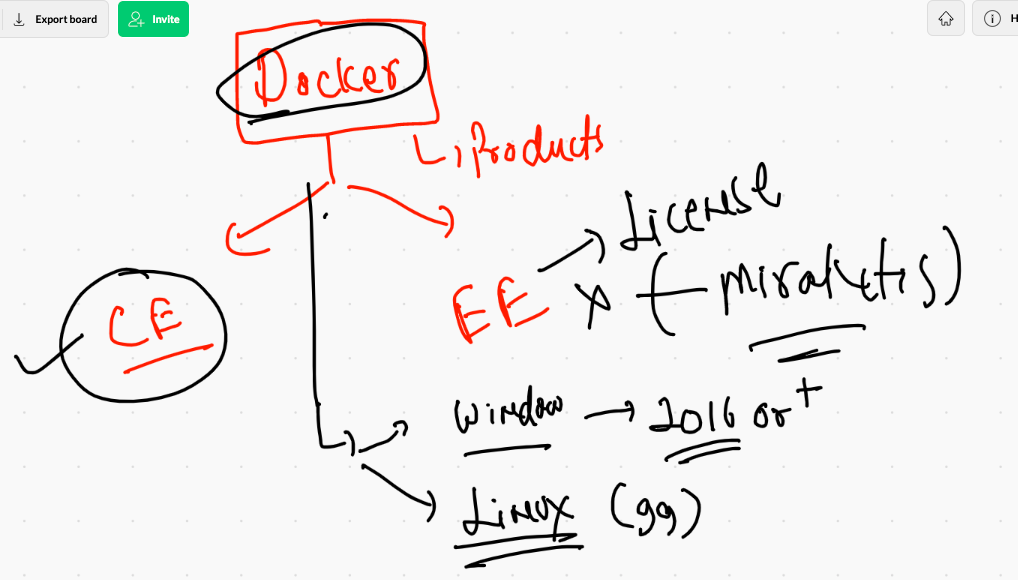 Export board
Invite
H
Docker
Products
License
CE
EE x (- mirantis)
Window → 2016 or +
Linux (99)